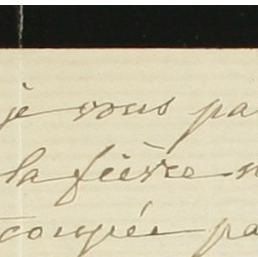 je vous pa
la fièvre n
coupée pa